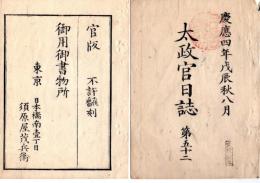 慶應四年戊辰秋八月
太政官日誌 第五十二
官版 不許飜刻
御用御書物所
東京
日本橋南壹丁目
須原屋茂兵衛